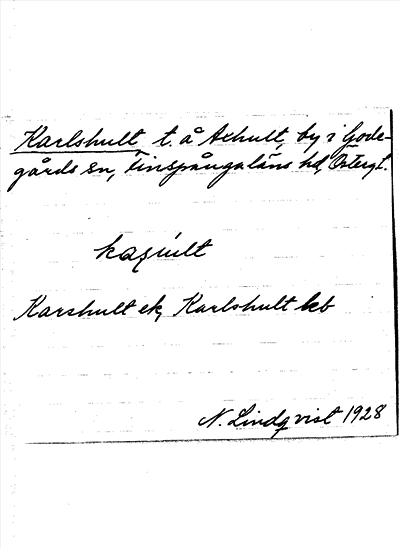 Karlshult, t. å Axhult, by i Gode-
gårds sn, Finspångaläns hd, Östergt.
Karshult ek, Karlshult kb
N. Lindqvist 1928